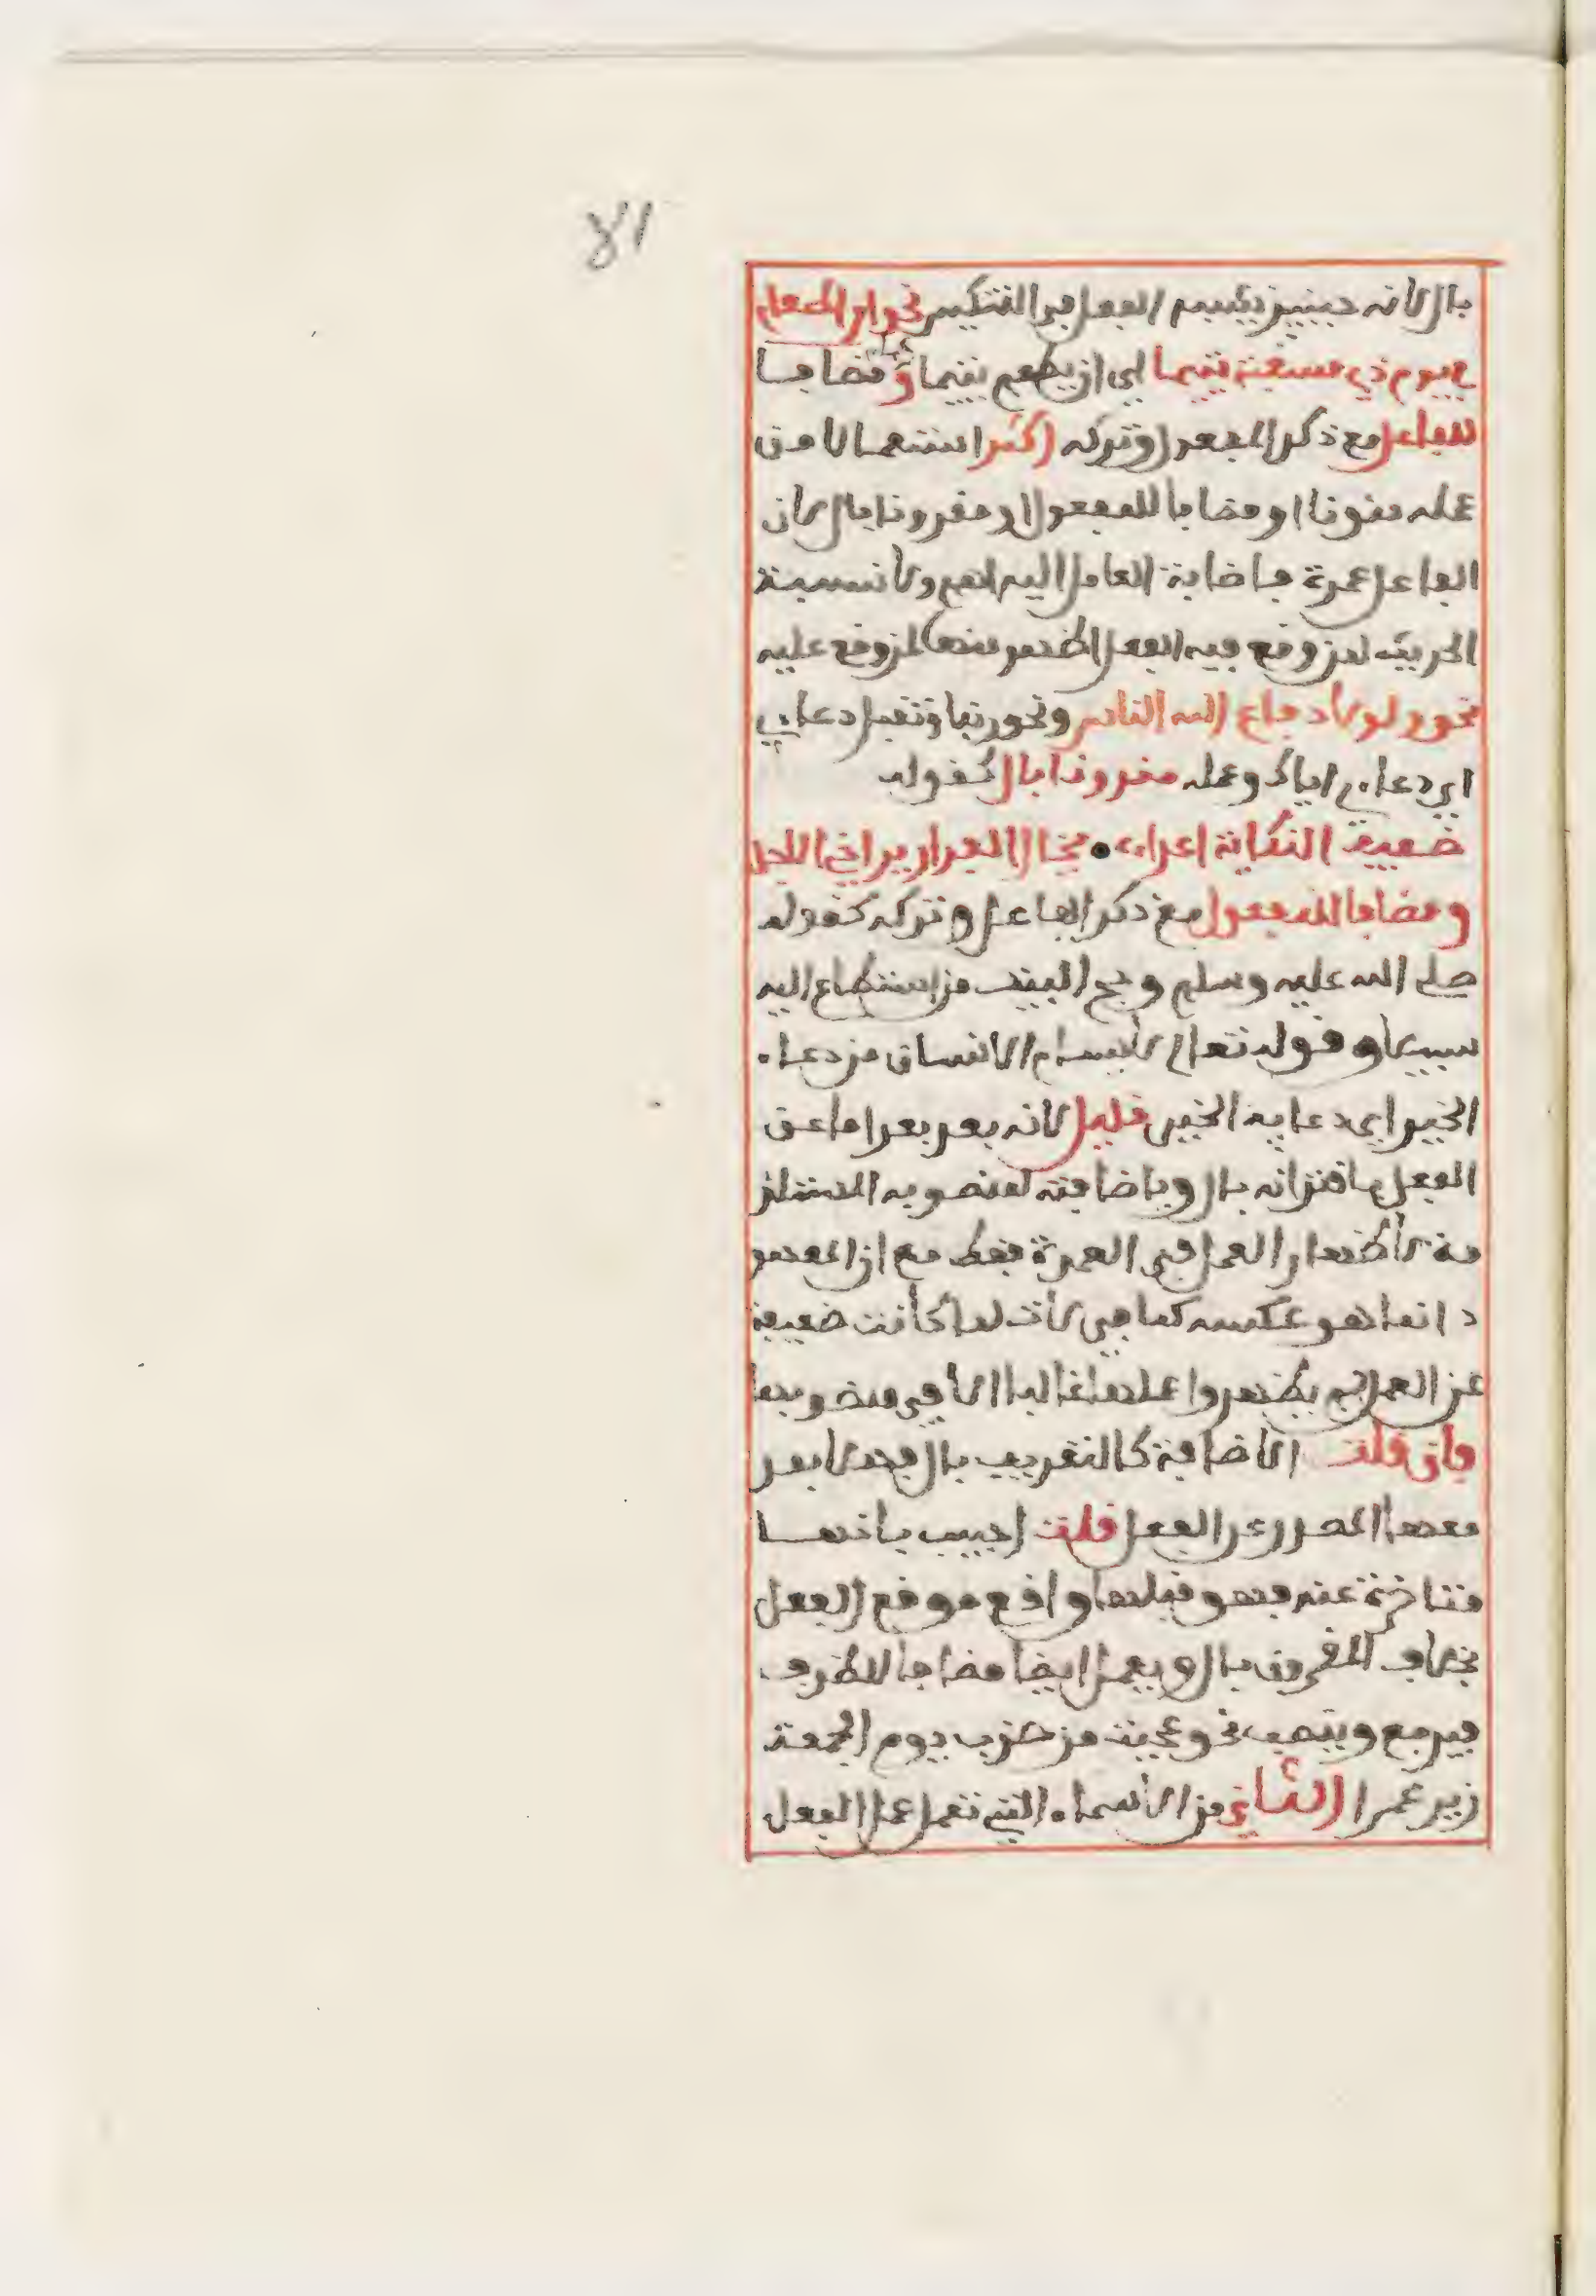 ٤١
بال لانه حينيذ يشبه الفعل في التنكير نحو او اطعام
في يوم ذي مسغبة يتيما اي ان يطعم يتيما و مضافا
للفاعل مع ذكر المفعول وتركه اكثر استعمالا من
عمله منونا او مضافا للمفعول او مقرونا بال لان
الفاعل عمدة فاضافة العامل اليه اهم ولا نسبة
الحدث لمن وقع فيه الفعل اظهر منها لمن وقع عليه
نحو ولولا دفاع الله الناس ونحو ربنا وتقبل دعاءي
اي دعاءي اياك وعمله مقرونا بال كقوله
ضعيف النكاية اعداءه • يخال الفرار يراخي الاجل
ومضافا للمفعول مع ذكر الفاعل وتركه كقوله
صلى الله عليه وسلم وحج البيت من استطاع اليه
سبيلا وقوله تعالى لا يسام الانسان من دعاء
الخير اي دعايه الخير قليل لانه بعد بعدا ما عن
الفعل باقترانه بال وباضافته لمنصوبه المستلز
مة لاظهار العمل في العمدة فقط مع ان المقصو
د انما هو عكسه كما في لات لما كانت ضعيفة
عن العمل لم يظهروا عملها غالبا الا في منصوبها
فان قلت الاضافة كالتعريف بال فهلا يبعد
معها المصدر عن الفعل قلت اجيب بانها
متاخرة عنه فهو قبلها واقع موقع الفعل
بخلاف المقرون بال ويعمل ايضا مضافا للظرف
فيرفع وينصب نحو عجبت من ضرب يوم الجمعة
زيد عمرا الثاني من الاسماء التي تعمل عمل الفعل